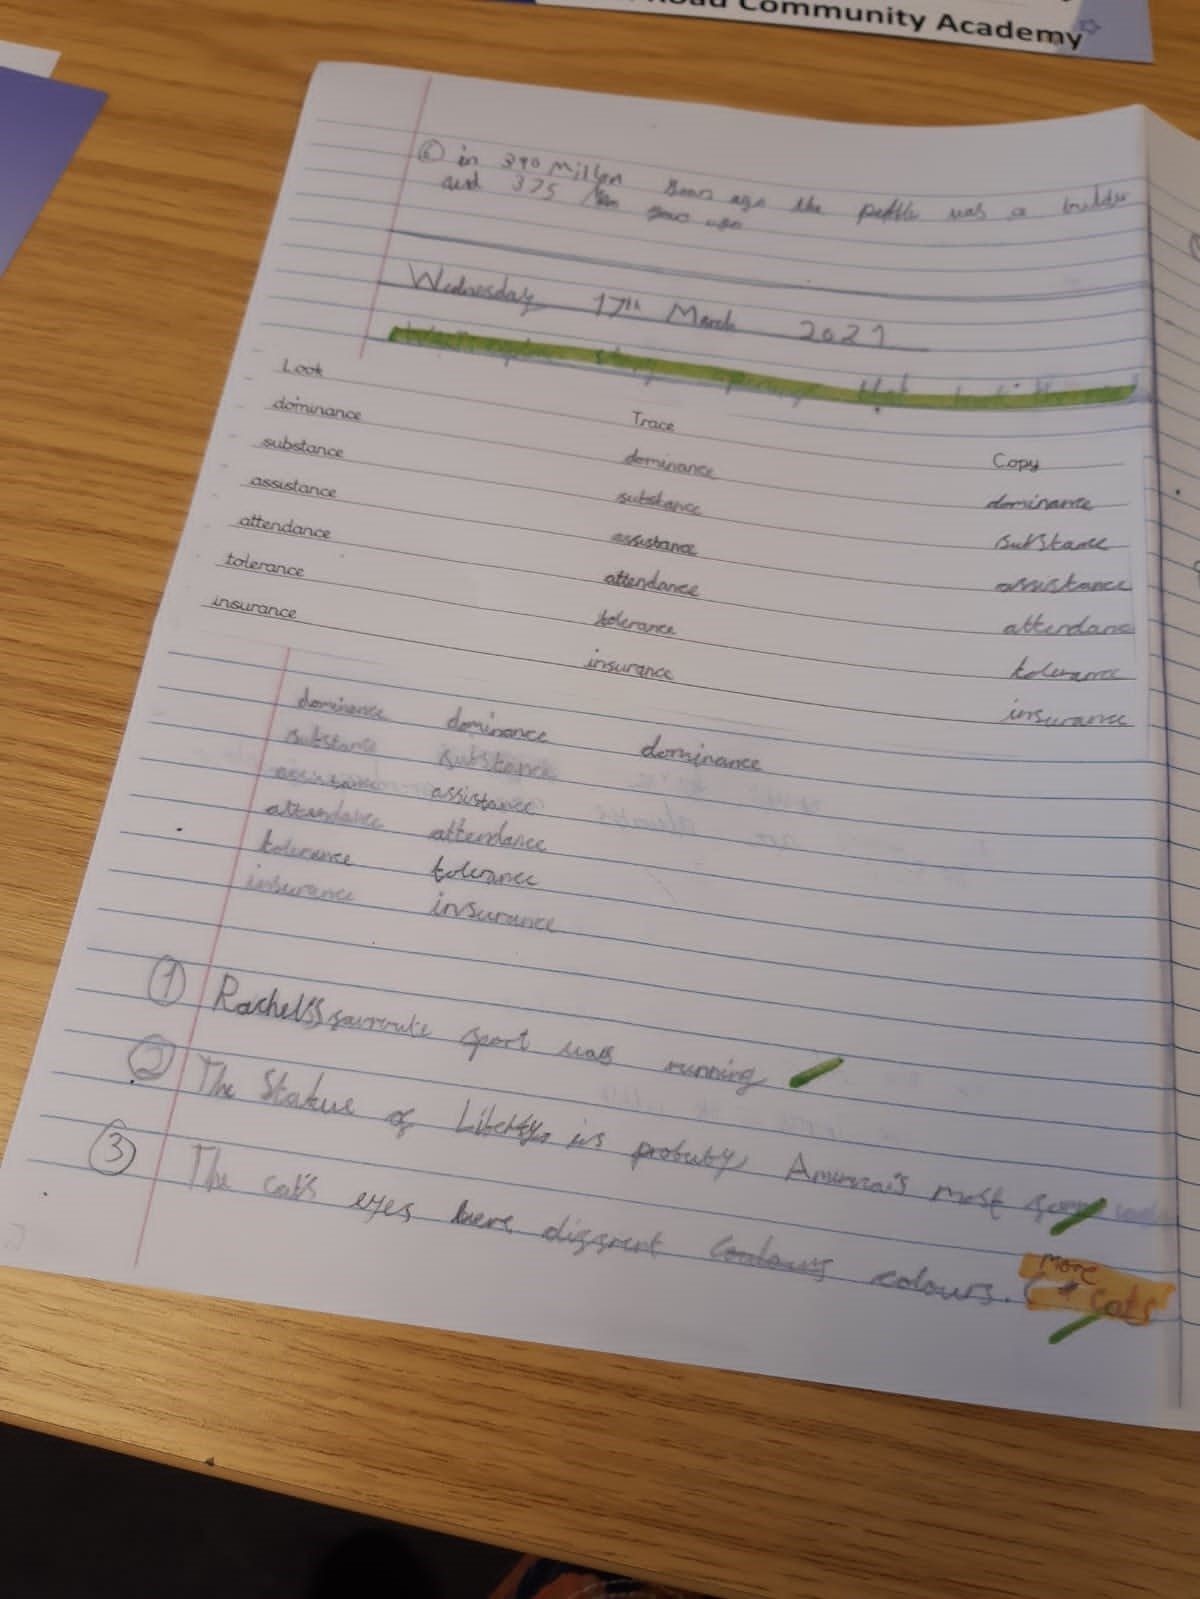 Road Community Academy
⑥ in 390 Millon years ago the pebble was a
and 375 years ago
Wednesday 17th March 2021
Look Trace Copy
dominance dominance dominance
substance substance substance
assistance assistance assistance
attendance attendance attendance
tolerance tolerance tolerance
insurance insurance insurance
dominance dominance dominance
substance substance
assistance assistance
attendance attendance
tolerance tolerance
insurance insurance
① Rachel's favourite sport was running
② The Statue of Liberty is America's most
③ The cat's eyes were colours.
more
cats